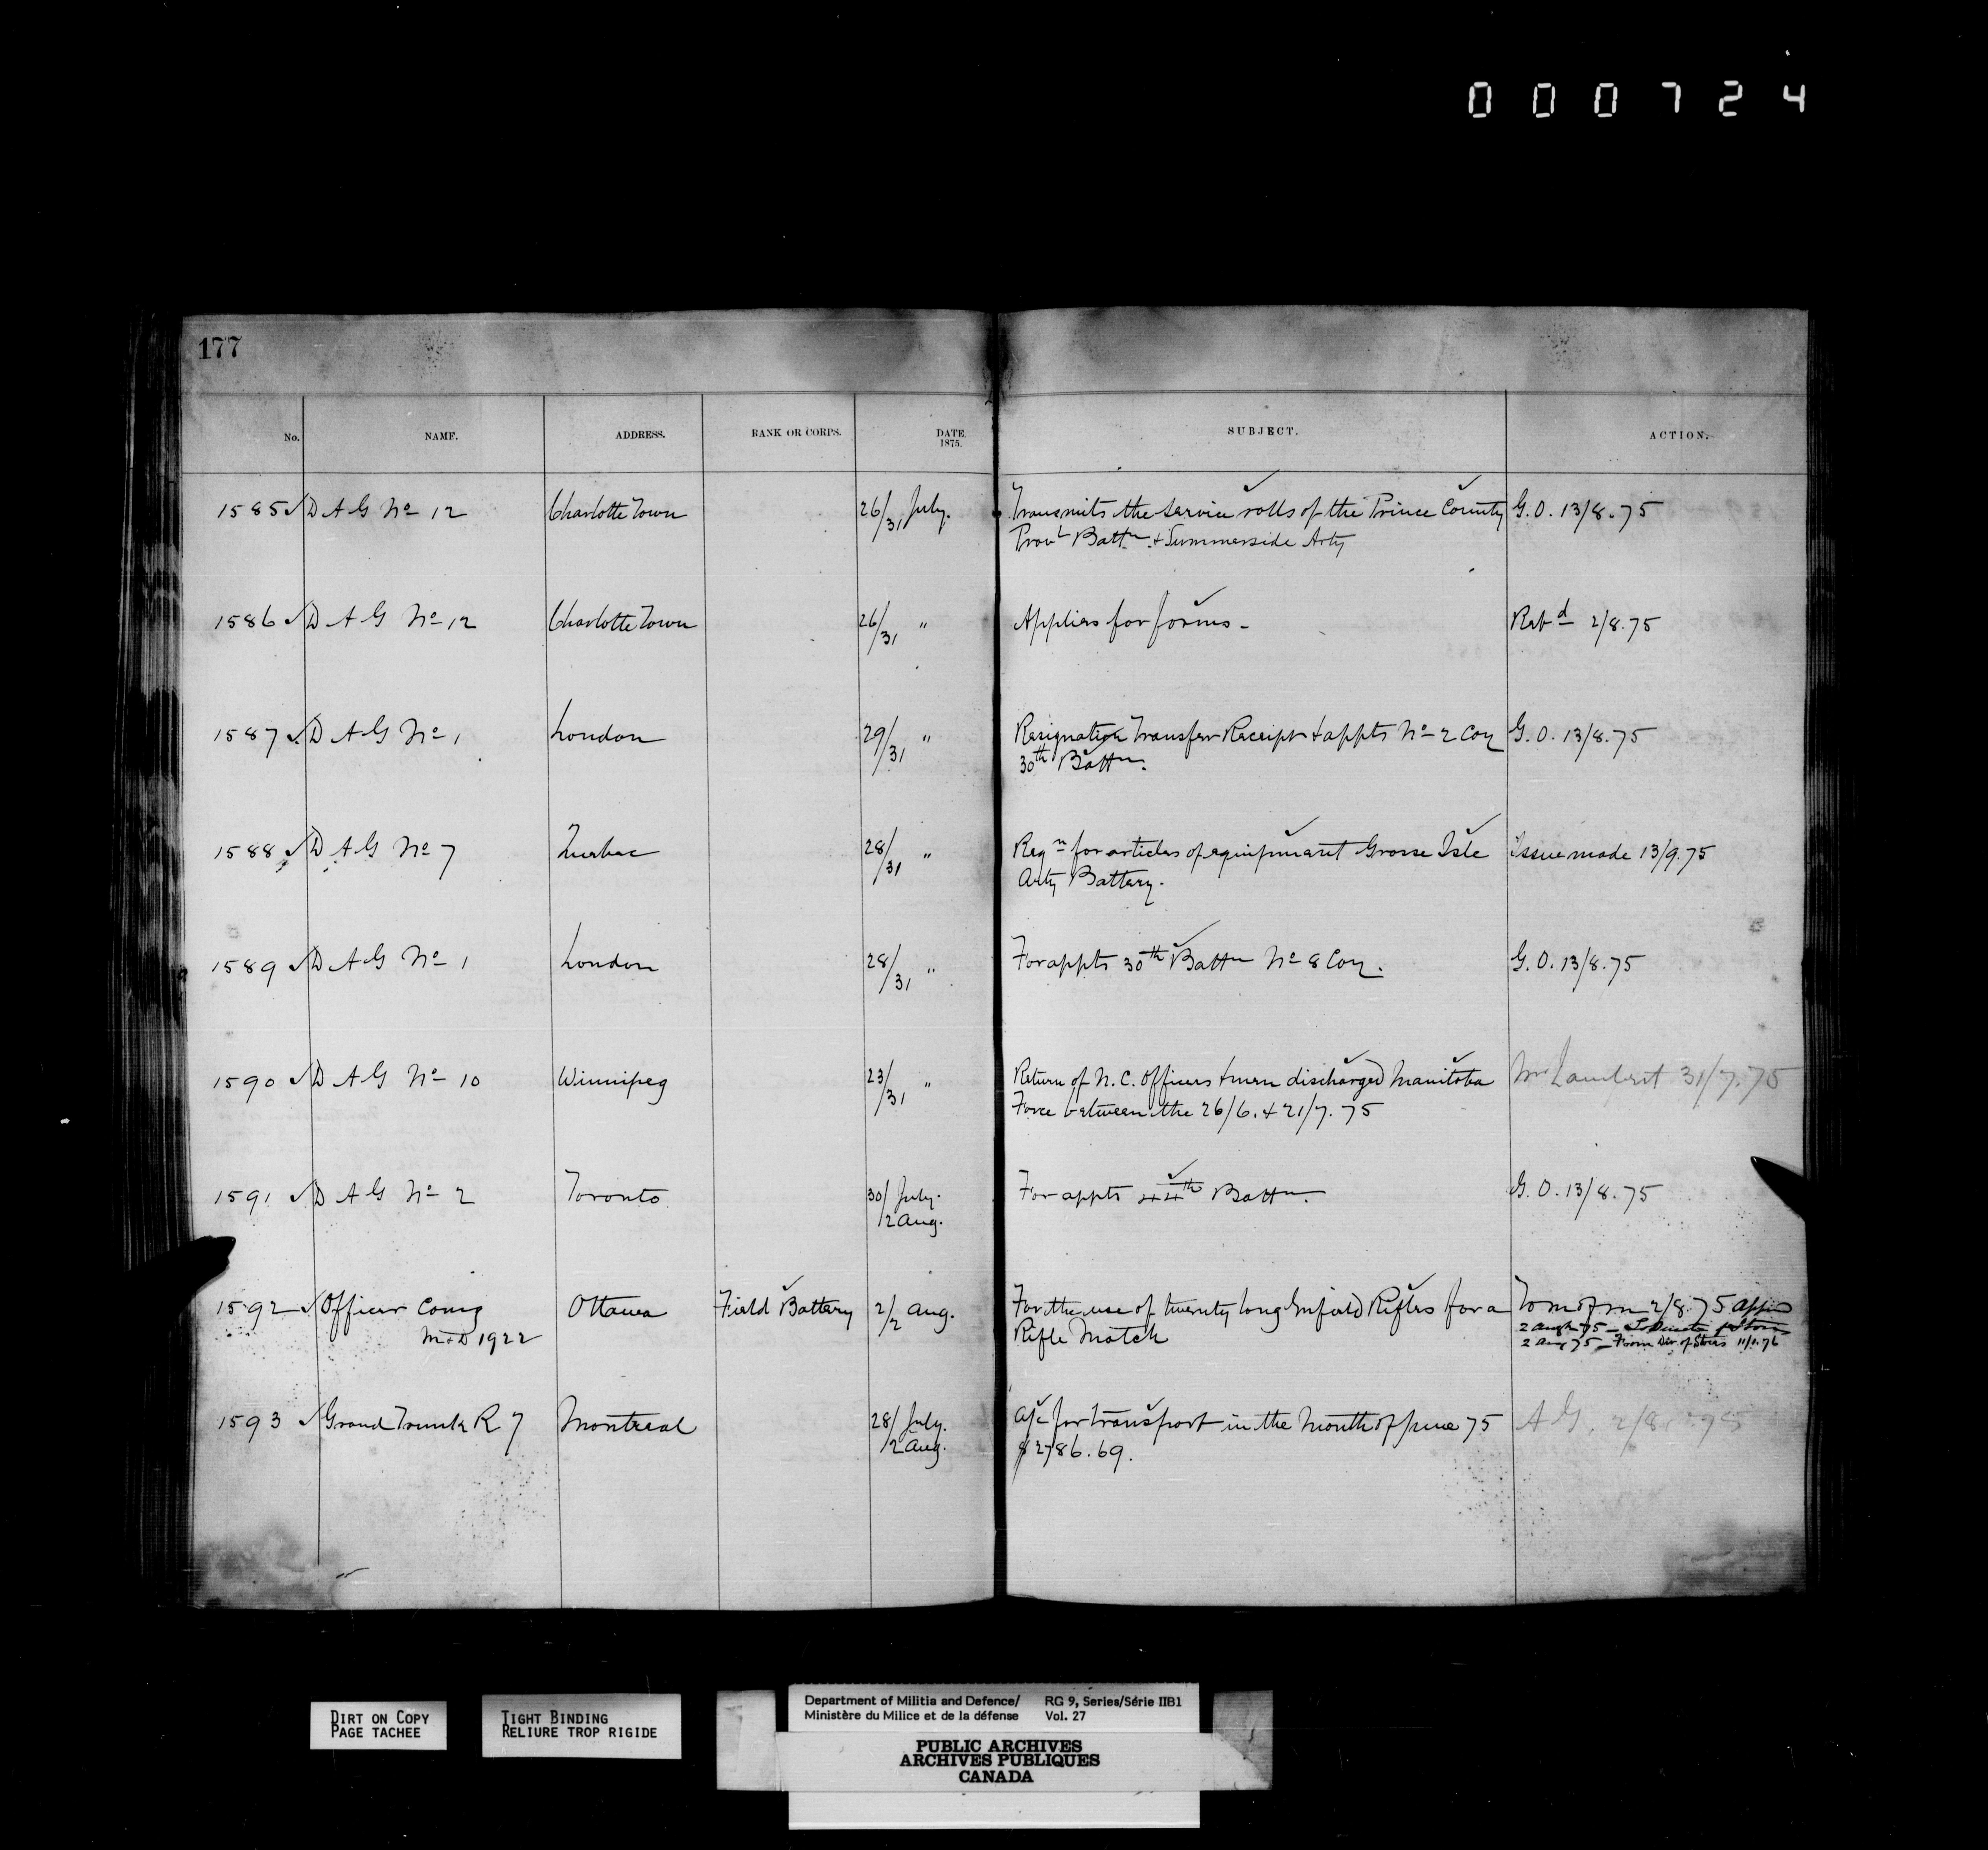 000724
177
No. NAME. ADDRESS. RANK OR CORPS. DATE. 1875. SUBJECT. ACTION.
1585 ✓ D A G No 12 Charlotte Town 26/31 July. Transmits the service rolls of the Prince County G.O. 13/8.75
Provl Battn. + Summerside Arty
1586 ✓ D A G No 12 Charlotte Town 26/31 " Applies for forms - Refd 2/8.75
1587 ✓ D A G No 1 London 29/31 " Resignation Transfer Receipt + appts No 2 Coy G.O. 13/8.75
30th Battn.
1588 ✓ D A G No 7 Quebec 28/31 " Reqn for articles of equipment Grosse Isle Issue made 13/9.75
Arty Battery.
1589 ✓ D A G No 1 London 28/31 " For appts 30th Battn No 8 Coy. G.O. 13/8.75
1590 ✓ D A G No 10 Winnipeg 23/31 " Return of N.C. Officers + men discharged Manitoba Mr Lambert 31/7.75
Force between the 26/6. + 21/7.75
1591 ✓ D A G No 2 Toronto 30/ July. For appts 44th Battn. G.O. 13/8.75
/2 Aug.
1592 ✓ Officer Comg Ottawa Field Battery 2/2 Aug. For the use of twenty long Enfield Rifles for a To m of m 2/8.75
M+D 1922 Rifle Match 2 Aug 75
2 Aug 75 - From Dir. of Stores 11/1.76
1593 ✓ Grand Trunk R 7 Montreal 28/ July. A/c for transport in the Month of June 75 A G. 2/8.75
/2 Aug. $2786.69.
DIRT ON COPY
PAGE TACHEE
TIGHT BINDING
RELIURE TROP RIGIDE
Department of Militia and Defence/ RG 9, Series/Série IIB1
Ministère du Milice et de la défense Vol. 27
PUBLIC ARCHIVES
ARCHIVES PUBLIQUES
CANADA